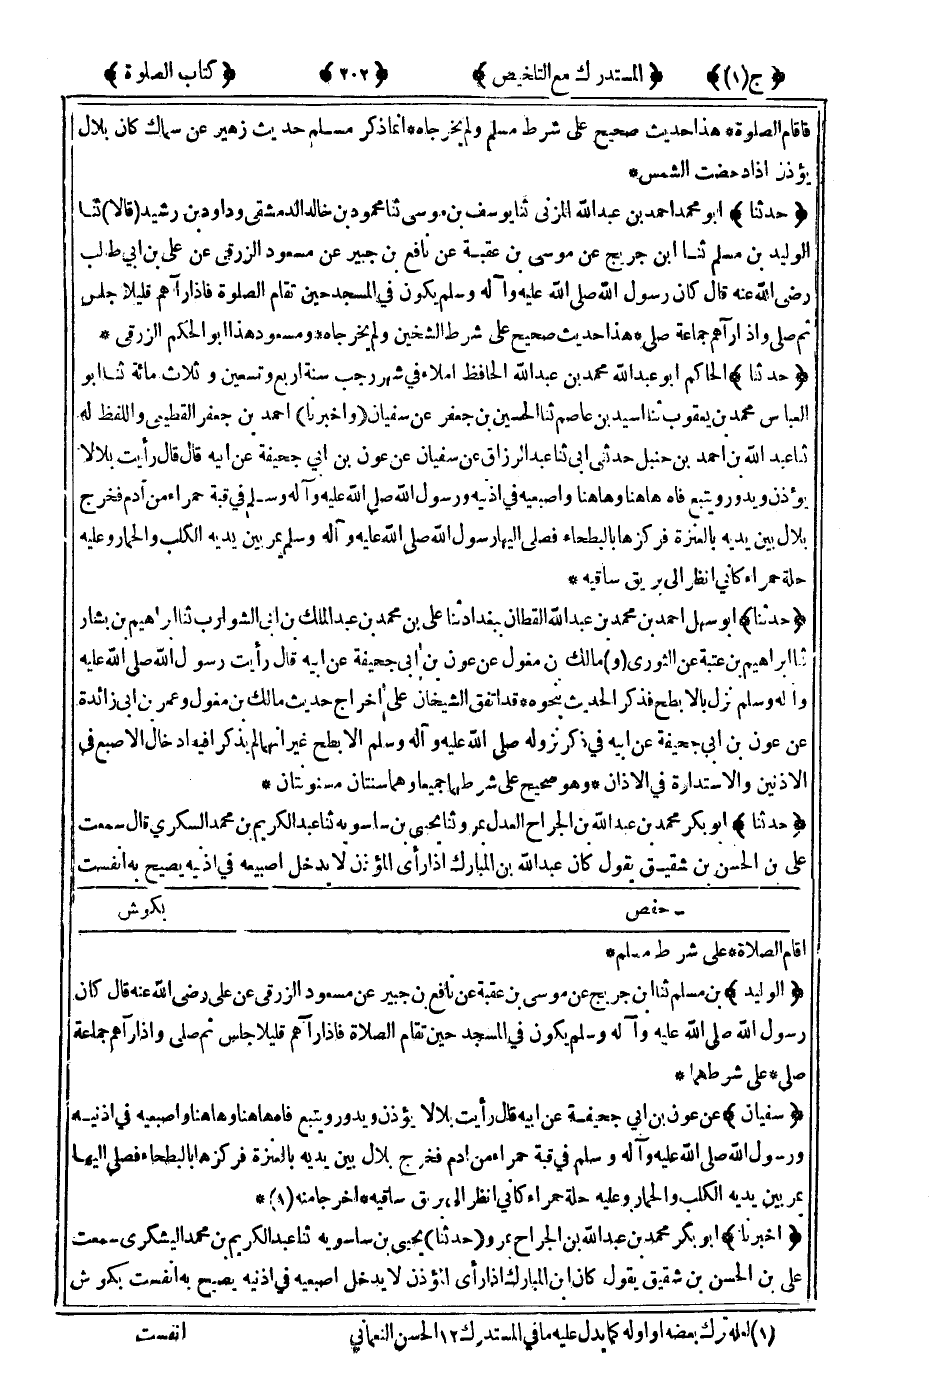 ﴿ ج(١) ﴾ ﴿ المستدرك مع التلخيص ﴾ ﴿ ٢٠٢ ﴾ ﴿ كتاب الصلوة ﴾
فاقام الصلوة * هذا حديث صحيح على شرط مسلم ولم يخرجاه * انما ذكر مسلم حديث زهير عن سماك كان بلال
يؤذن اذا دحضت الشمس *
﴿ حدثنا ﴾ ابو محمد احمد بن عبد الله المزنى ثنا يوسف بن موسى ثنا محمود بن خالد الدمشقى وداود بن رشيد (قالا) ثنا
الوليد بن مسلم ثنا ابن جريج عن موسى بن عقبة عن نافع بن جبير عن مسعود الزرقى عن على بن ابي طالب
رضى الله عنه قال كان رسول الله صلى الله عليه وآله وسلم يكون في المسجد حين تقام الصلوة فاذا رآهم قليلا جلس
ثم صلى واذا رآهم جماعة صلى * هذا حديث صحيح على شرط الشيخين ولم يخرجاه * ومسعود هذا ابو الحكم الزرقى *
﴿ حدثنا ﴾ الحاكم ابو عبد الله محمد بن عبد الله الحافظ املاء في شهر رجب سنة اربع وتسعين و ثلاث مائة ثنا ابو
العباس محمد بن يعقوب ثنا اسيد بن عاصم ثنا الحسين بن جعفر عن سفيان (واخبرنا) احمد بن جعفر القطيعى واللفظ له
ثنا عبد الله بن احمد بن حنبل حدثنى ابى ثنا عبد الرزاق عن سفيان عن عون بن ابي جحيفة عن ابيه قال قال رأيت بلالا
يؤذن ويدور ويتبع فاه هاهنا وهاهنا واصبعيه في اذنيه ورسول الله صلى الله عليه وآله وسلم في قبة حمراء من أدم فخرج
بلال بين يديه بالعنزة فركزها بالبطحاء فصلى اليها رسول الله صلى الله عليه وآله وسلم يمر بين يديه الكلب والحمار وعليه
حلة حمراء كأني انظر الى بريق ساقيه *
﴿ حدثنا ﴾ ابو سهل احمد بن محمد بن عبد الله القطان ببغداد ثنا على بن محمد بن عبد الملك بن ابى الشوارب ثنا ابراهيم بن بشار
ثنا ابراهيم بن عتبة عن الثورى (و) مالك بن مغول عن عون بن أبي جحيفة عن ابيه قال رأيت رسول الله صلى الله عليه
وآله وسلم نزل بالابطح فذكر الحديث بنحوه * قد اتفق الشيخان على اخراج حديث مالك بن مغول وعمر بن ابى زائدة
عن عون بن ابي جحيفة عن ابيه في ذكر نزوله صلى الله عليه وآله وسلم الابطح غير انهما لم يذكرا فيه ادخال الاصبع في
الاذنين والاستدارة في الاذان * وهو صحيح على شرطهما جميعا وهما سنتان مسنونتان *
﴿ حدثنا ﴾ ابو بكر محمد بن عبد الله بن الجراح العدل بمرو ثنا يحيى بن ساسويه ثنا عبد الكريم بن محمد السكري قال سمعت
على بن الحسن بن شقيق يقول كان عبد الله بن المبارك اذا رأى المؤذن لا يدخل اصبعيه في اذنيه يصيح به انفست
ـ حفص بكوش
اقام الصلاة * على شرط مسلم *
﴿ الوليد ﴾ بن مسلم ثنا ابن جريج عن موسى بن عقبة عن نافع بن جبير عن مسعود الزرقى عن على رضى الله عنه قال كان
رسول الله صلى الله عليه وآله وسلم يكون في المسجد حين تقام الصلاة فاذا رآهم قليلا جلس ثم صلى واذا رآهم جماعة
صلى * على شرطهما *
﴿ سفيان ﴾ عن عون بن ابي جحيفة عن ابيه قال رأيت بلالا يؤذن ويدور ويتبع فاه هاهنا وهاهنا واصبعيه في اذنيه
ورسول الله صلى الله عليه وآله وسلم في قبة حمراء من ادم فخرج بلال بين يديه بالعنزة فركزها بالبطحاء فصلى اليها
يمر بين يديه الكلب والحمار وعليه حلة حمراء كأني انظر الى بريق ساقيه * اخرجا منه (١) *
﴿ اخبرنا ﴾ ابو بكر محمد بن عبد الله بن الجراح بمرو (حدثنا) يحيى بن ساسويه ثنا عبد الكريم بن محمد اليشكرى سمعت
على بن الحسن بن شقيق يقول كان ابن المبارك اذا رأى المؤذن لا يدخل اصبعيه في اذنيه يصيح به انفست بكوش
(١) لعله ترك بعضه او اوله كما يدل عليه ما في المستدرك ١٢ الحسن النعماني انفست